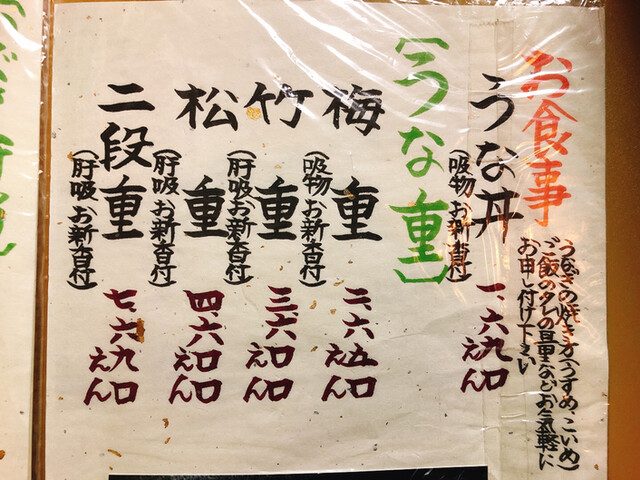 お食事
うなぎの焼き方(うすめ、こいめ)
ご飯のタレの具量などお気軽に
お申し付け下さい
うな丼
(吸物、お新香付)
一、六九〇えん
〔うな重〕
梅重
(吸物、お新香付)
二、六五〇えん
竹重
(肝吸、お新香付)
三、六〇〇えん
松重
(肝吸、お新香付)
四、六〇〇えん
二段重
(肝吸、お新香付)
七、六九〇えん